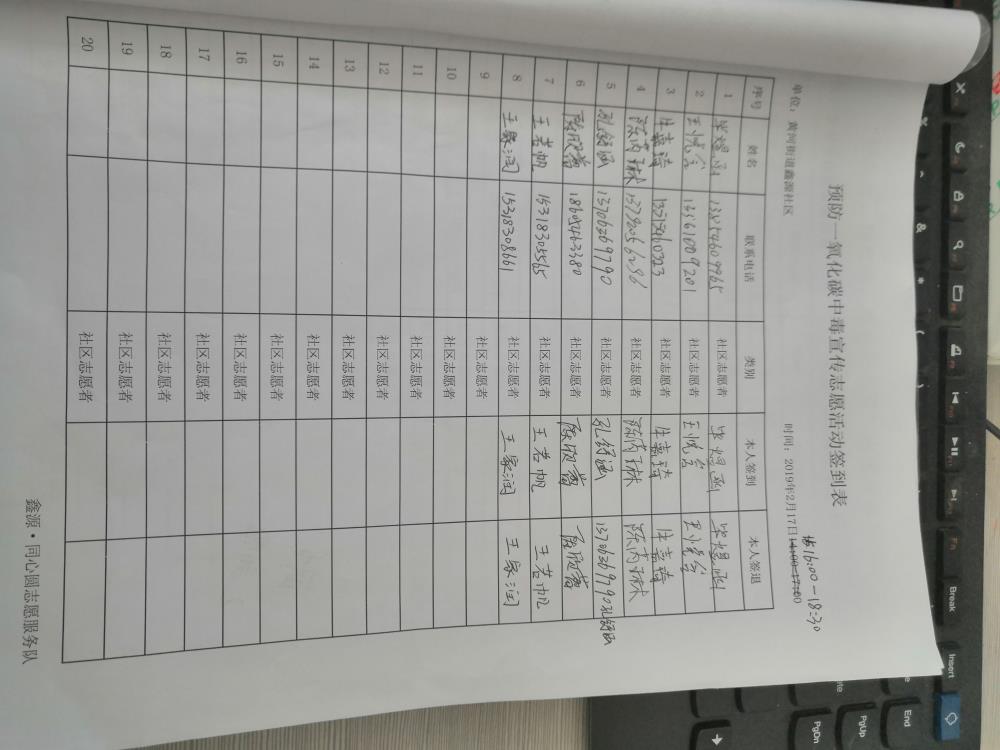 预防一氧化碳中毒宣传志愿活动签到表
单位：黄河街道鑫源社区 时间：2019年2月17日14:00-17:00 16:00-18:30
序号 姓名 联系电话 类别 本人签到 本人签退
1 毕煜函 社区志愿者 毕煜函 毕煜函
2 13561009201 社区志愿者
3 社区志愿者
4 陈芮琳 社区志愿者 陈芮琳 陈芮琳
5 孔钰涵 13706369790 社区志愿者 孔钰涵 13706369790孔钰涵
6 18605463380 社区志愿者
7 王若帆 15318305565 社区志愿者 王若帆 王若帆
8 王家润 15318308661 社区志愿者 王家润 王家润
9 社区志愿者
10 社区志愿者
11 社区志愿者
12 社区志愿者
13 社区志愿者
14 社区志愿者
15 社区志愿者
16 社区志愿者
17 社区志愿者
18 社区志愿者
19 社区志愿者
20 社区志愿者
鑫源·同心圆志愿服务队
Fn
Break
Insert
End
PgUp
PgDn